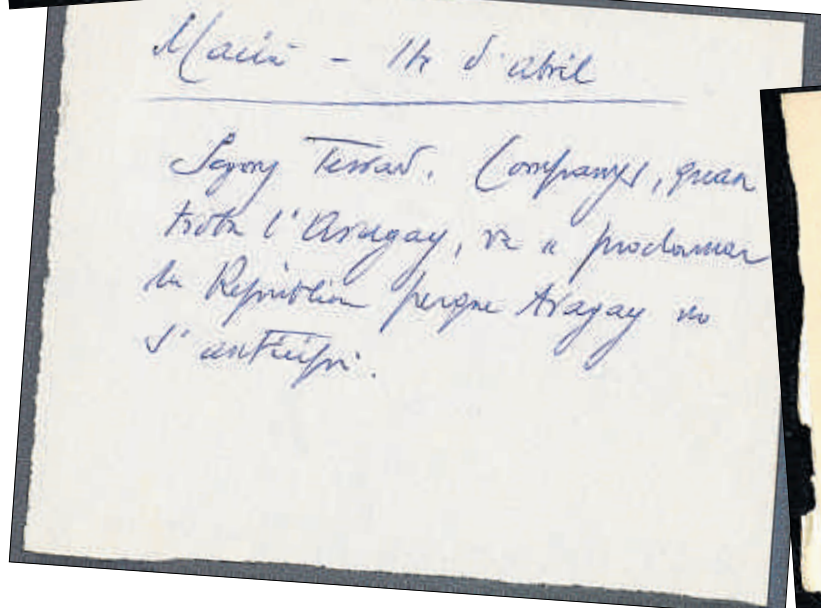 Macià - 14 d'abril
Segons Terrad. Companys, quan
troba l'Aragay, va a proclamar
la República perque Aragay no
s'anticipi.